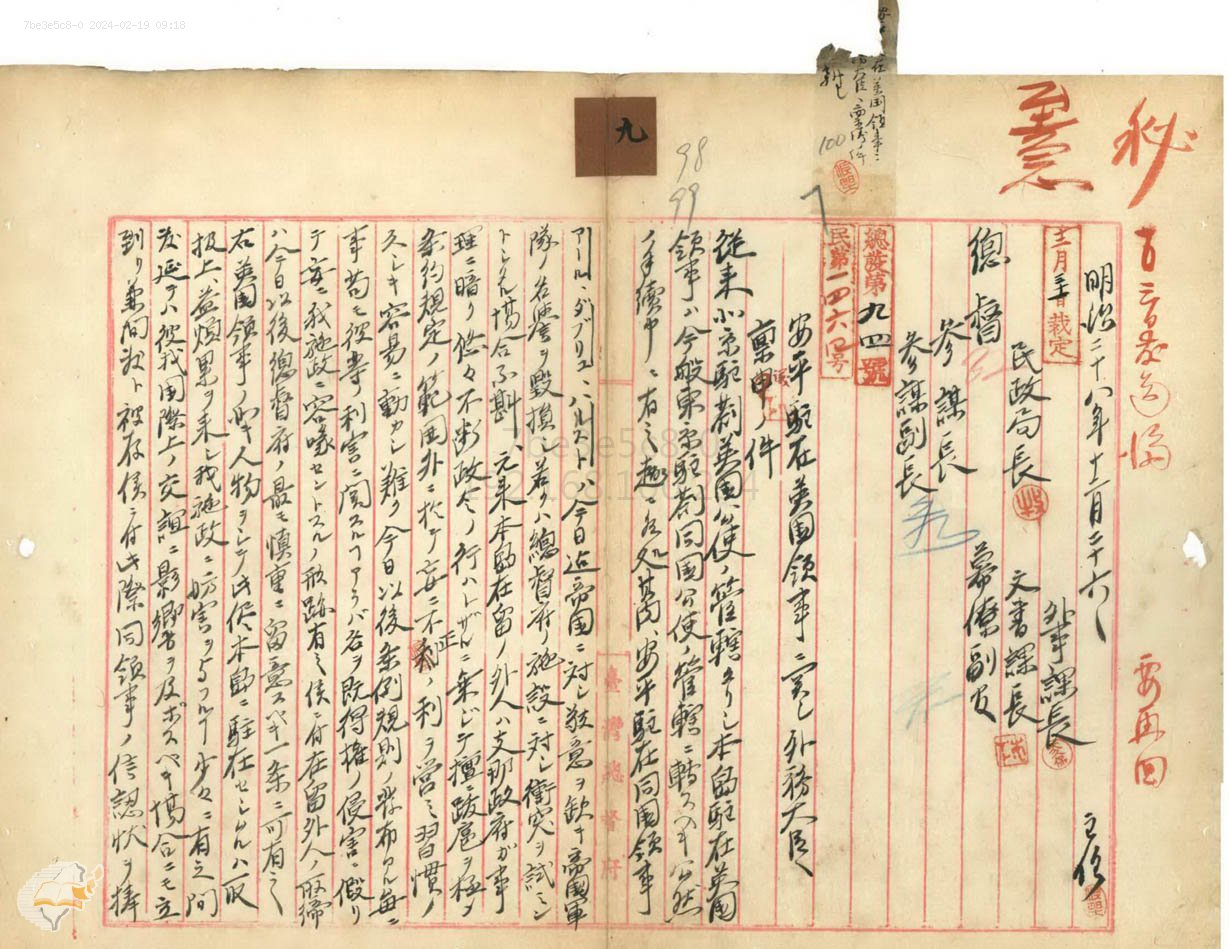 7be3e5c8-0 2024-02-19 09:18
秘
至急
要再回
九
98
99
100
明治二十八年十二月二十六日
主任
外事課長
民政局長
文書課長
十二月 裁定
總督
幕僚副官
參謀長
參謀副長
總發第九四號
民第一四六 号
安平駐在英国領事ニ関シ外務大臣ヘ
稟申ノ件
從来北京駐劄英国公使ノ管轄タリシ本島駐在英国
領事ハ今般東京駐劄同国公使ノ管轄ニ轉スヘキ公然
ノ手續中ニ有之趣ニ候処其内、安平駐在同国領事
アール、ダブリユ、ハルストハ今日迄帝国ニ対シ敬意ヲ欠キ帝国軍
隊ノ名誉ヲ毀損シ若クハ總督府ノ施設ニ対シ衝突ヲ試ミシ
トシタル場合不尠、元来本島在留ノ外人ハ支那政府ガ事
理ニ暗ク悠々不断政令ノ行ハレザルニ乗ジテ擅ニ跋扈ヲ極メ
条約規定ノ範囲外ニ於テ妄ニ不正ノ利ヲ営ミ習慣ノ
久シキ容易ニ動カシ難ク今日以後条例規則ノ発布アル毎ニ
事苟モ彼等ノ利害ニ関スルコアラバ名ヲ既得権ノ侵害ニ假リ
テ妄ニ我施政ニ容喙セントスルノ形跡有之候ニ付在留外人ノ取締
ハ今日以後總督府ノ最モ慎重ニ留意スヘキ一条ニ可有之
右英国領事ノ如キ人物ヲシテ此侭本島ニ駐在セシムルハ取
扱上、益煩累ヲ来シ我施政ニ妨害ヲ与フル 少々ニ有之間
彼我国際上ノ交誼ニ影響ヲ及ボスヘキ場合ニモ立
到リ兼間敷ト被存候ニ付此際同領事ノ信認状ヲ捧
臺灣總督府